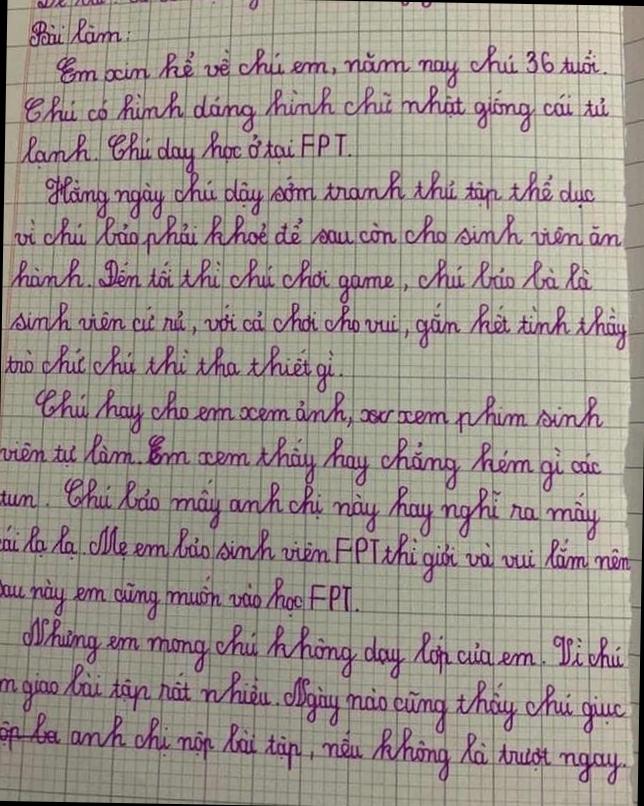 Bài làm:
Em xin kể về chú em, năm nay chú 36 tuổi.
Chú có hình dáng hình chữ nhật giống cái tủ
lạnh. Chú dạy học ở tại FPT.
Hằng ngày chú dậy sớm tranh thủ tập thể dục
vì chú bảo phải khoẻ để sau còn cho sinh viên ăn
hành. Đến tối thì chú chơi game, chú bảo là là
sinh viên cứ rủ, với cả chơi cho vui, gắn kết tình thầy
trò chứ chú thì tha thiết gì.
Chú hay cho em xem ảnh, xem phim sinh
viên tự làm. Em xem thấy hay chẳng kém gì các
tun. Chú bảo mấy anh chị này hay nghĩ ra mấy
ái lạ lạ. Mẹ em bảo sinh viên FPT thì giỏi và vui lắm nên
sau này em cũng muốn vào học FPT.
Nhưng em mong chú không dạy lớp của em. Vì chú
m giao bài tập rất nhiều. Ngày nào cũng thấy chú giục
anh chị nộp bài tập, nếu không là trượt ngay.